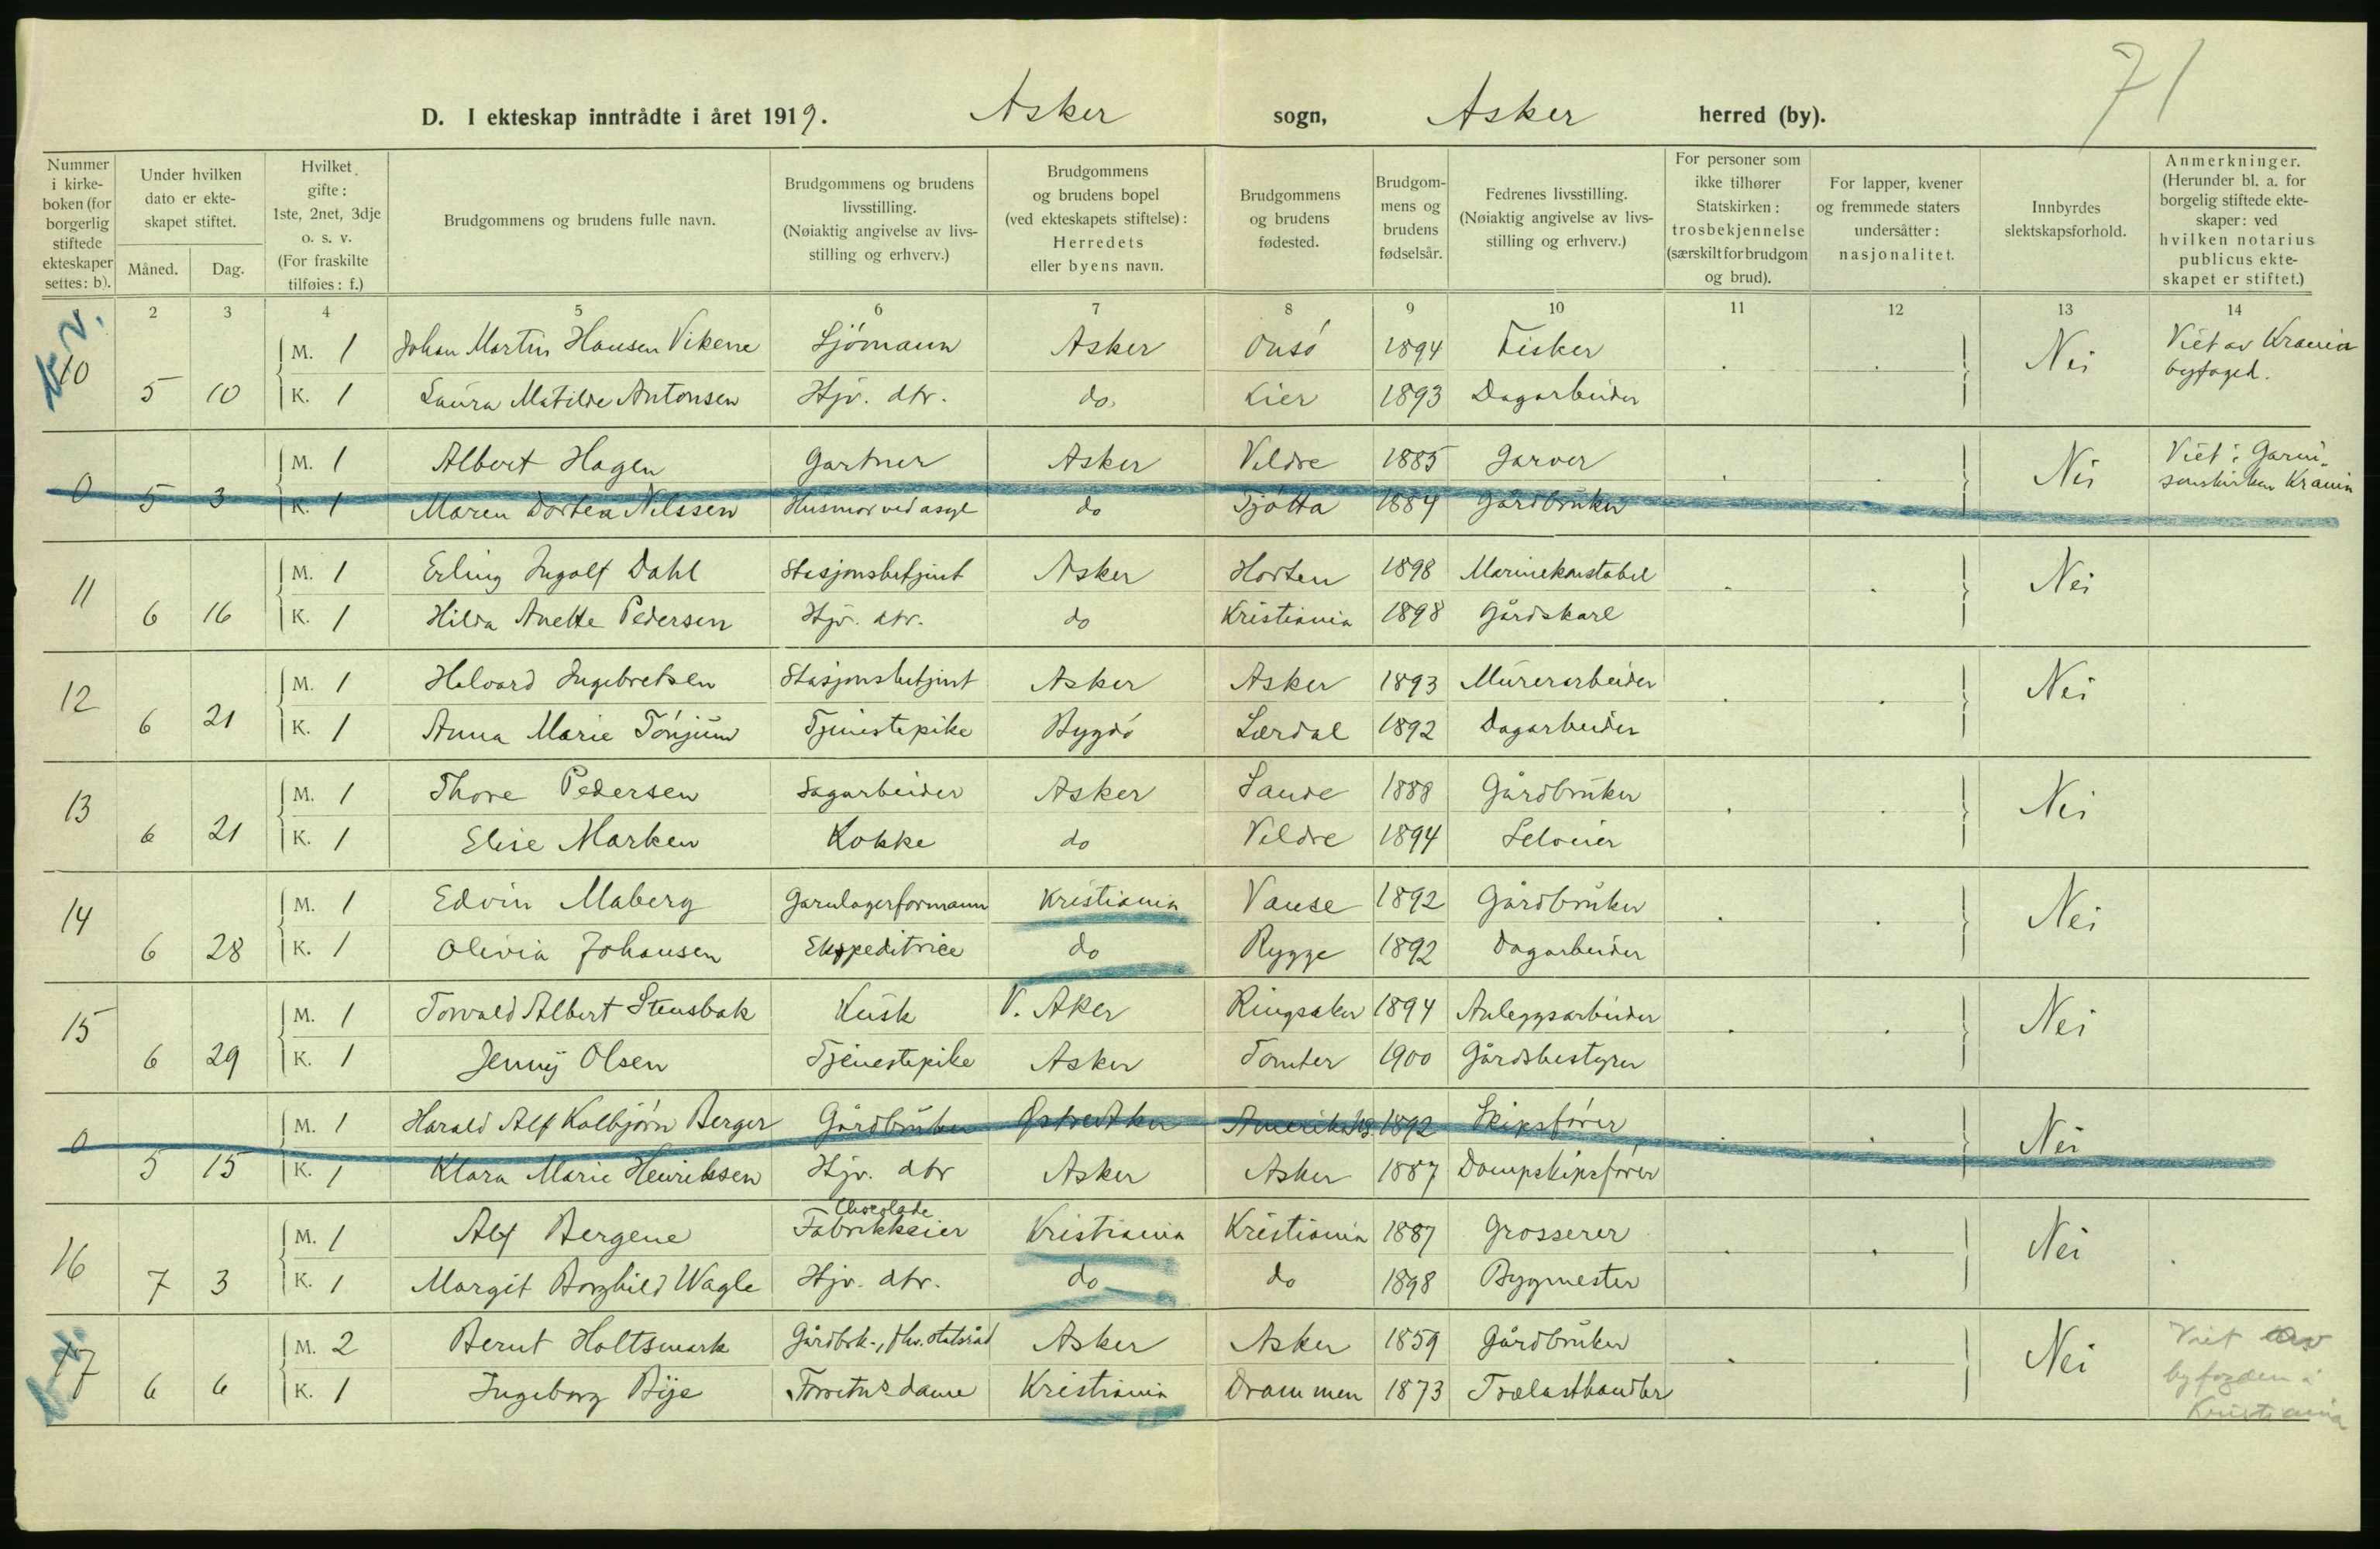 71
D. I ekteskap inntrådte i året 1919. Asker sogn, Asker herred (by).
Nummer i kirkeboken (for borgerlig stiftede ekteskaper settes: b).
Under hvilken dato er ekteskapet stiftet.
Måned. Dag.
Hvilket gifte: 1ste, 2net, 3dje o. s. v. (For fraskilte tilføies: f.)
Brudgommens og brudens fulle navn.
Brudgommens og brudens livsstilling. (Nøiaktig angivelse av livsstilling og erhverv.)
Brudgommens og brudens bopel (ved ekteskapets stiftelse): Herredets eller byens navn.
Brudgommens og brudens fødested.
Brudgommens og brudens fødselsår.
Fedrenes livsstilling. (Nøiaktig angivelse av livsstilling og erhverv.)
For personer som ikke tilhører Statskirken: trosbekjennelse (særskilt for brudgom og brud).
For lapper, kvener og fremmede staters undersåtter: nasjonalitet.
Innbyrdes slektskapsforhold.
Anmerkninger. (Herunder bl. a. for borgelig stiftede ekteskaper: ved hvilken notarius publicus ekteskapet er stiftet.)
2 3 4 5 6 7 8 9 10 11 12 13 14
10 M. 1 Johan Martin Hansen Vikene Sjömann Asker Onsö 1894 Fisker Nei Viet av Krania
5 10 K. 1 Laura Matilde Antonsen Hjv. dtr. do. Lier 1893 Dagarbeider byfoged.
0 M. 1 Albert Hagen Gartner Asker Veldre 1885 Garver Nei Viet i Garni-
5 3 K. 1 Maren Dortea Nilssen Husmor ved asyl do Tjötta 1884 Gårdbruker sonskirken Krania
11 M. 1 Erling Ingolf Dahl Stasjonsbetjent Asker Horten 1898 Marinekonstabel Nei
6 16 K. 1 Hilda Anette Pedersen Hjv. dtr. do Kristiania 1898 Gårdskarl
12 M. 1 Halvard Ingebretsen Stasjonsbetjent Asker Asker 1893 Murerarbeider Nei
6 21 K. 1 Anna Marie Tönjum Tjenestepike Bygdö Lærdal 1892 Dagarbeider
13 M. 1 Thore Pedersen Sagarbeider Asker Sande 1888 Gårdbruker Nei
6 21 K. 1 Elise Marken Kokke do Veldre 1894 Selveier
14 M. 1 Edvin Maberg Garnlagerformann Kristiania Vanse 1892 Gårdbruker Nei
6 28 K. 1 Olivia Johansen Ekspeditrice do Rygge 1892 Dagarbeider
15 M. 1 Torvald Albert Stensbak Kusk V. Aker Ringsaker 1894 Anleggsarbeider Nei
6 29 K. 1 Jenny Olsen Tjenestepike Asker Tomter 1900 Gårdsbestyrer
0 M. 1 Harald Alf Kolbjörn Berger Gårdbruker Östre Aker Amerika 1892 Skipsförer Nei
5 15 K. 1 Klara Marie Henriksen Hjv. dtr Asker Asker 1887 Dampskipsförer
16 M. 1 Alf Bergene Chocolade Fabrikkeier Kristiania Kristiania 1887 Grosserer Nei
7 3 K. 1 Margit Borghild Wagle Hjv. dtr. do do 1898 Bygmester
17 M. 2 Bernt Holtsmark Gårdbrk., fhv. statsråd Asker Asker 1859 Gårdbruker Nei Viet av
6 6 K. 1 Ingeborg Bije Kristiania Drammen 1873 Trælasthandler byfogden i
Kristiania